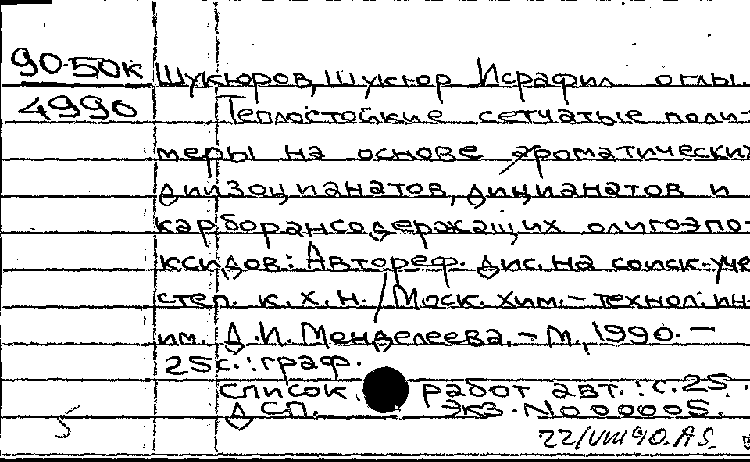 90-50К Шукюров, Шукюр Исрафил оглы.
4990 Теплостойкие сетчатые поли-
меры на основе ароматических
диизоцианатов, дицианатов и
карборансодержащих олигоэпо-
ксидов: Автореф. дис. на соиск. уче
степ. к.х.н. / Моск. хим.-технол. ин
им. Д.И. Менделеева. - М., 1990. -
25с.: граф.
Список работ авт.: с.25
ДСП. Экз. No 00005.
5 22/VIII 90. AS.